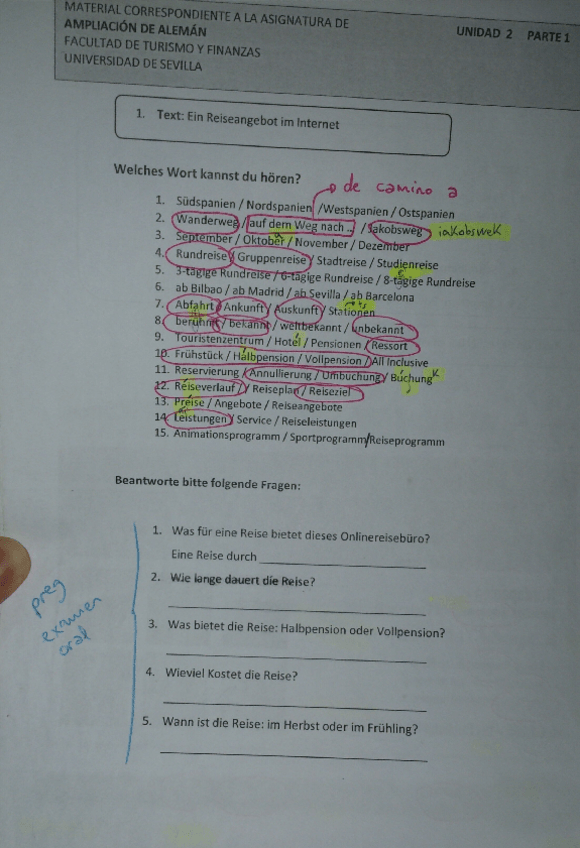 MATERIAL CORRESPONDIENTE A LA ASIGNATURA DE
AMPLIACIÓN DE ALEMÁN
FACULTAD DE TURISMO Y FINANZAS
UNIVERSIDAD DE SEVILLA
UNIDAD 2 PARTE 1
1. Text: Ein Reiseangebot im Internet
Welches Wort kannst du hören?
de camino a
1. Südspanien / Nordspanien /Westspanien / Ostspanien
2. Wanderweg / auf dem Weg nach .. / Jakobsweg iakobsweK
3. September / Oktober / November / Dezember
4. Rundreise / Gruppenreise / Stadtreise / Studienreise
5. 3-tägige Rundreise / 6-tägige Rundreise / 8-tägige Rundreise
6. ab Bilbao / ab Madrid / ab Sevilla / ab Barcelona
7. Abfahrt / Ankunft / Auskunft / Stationen
8. berühmt / bekannt / weltbekannt / unbekannt
9. Touristenzentrum / Hotel / Pensionen / Ressort
10. Frühstück / Halbpension / Vollpension / All Inclusive
11. Reservierung / Annullierung / Umbuchung / Buchung K
12. Reiseverlauf / Reiseplan / Reiseziel
13. Preise / Angebote / Reiseangebote
14. Leistungen / Service / Reiseleistungen
15. Animationsprogramm / Sportprogramm/Reiseprogramm
Beantworte bitte folgende Fragen:
1. Was für eine Reise bietet dieses Onlinereisebüro?
Eine Reise durch
2. Wie lange dauert die Reise?
3. Was bietet die Reise: Halbpension oder Vollpension?
4. Wieviel Kostet die Reise?
5. Wann ist die Reise: im Herbst oder im Frühling?
preg
examen
oral